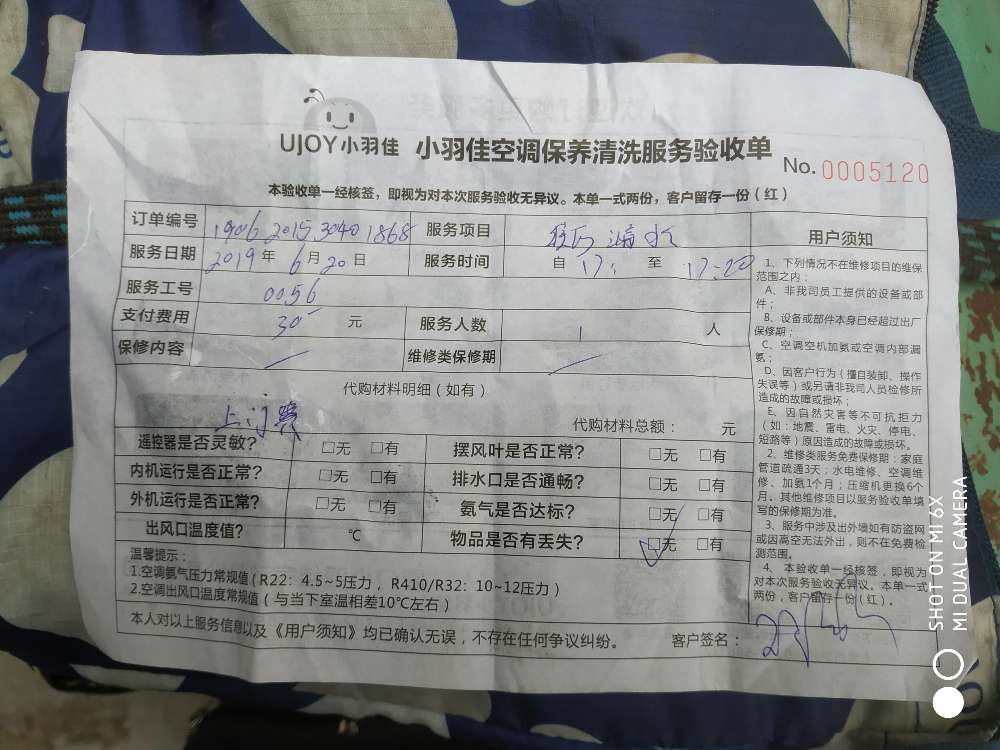 UJOY小羽佳 小羽佳空调保养清洗服务验收单 No. 0005120
本验收单一经核签，即视为对本次服务验收无异议。本单一式两份，客户留存一份（红）
订单编号 1906 2015 3040 1868 服务项目 漏水
服务日期 2019年 6月 20日 服务时间 自 17: 至 17:20
服务工号 0056
支付费用 30 元 服务人数 1 人
保修内容 维修类保修期
代购材料明细（如有）
上门费
代购材料总额： 元
遥控器是否灵敏？ □无 □有 摆风叶是否正常？ □无 □有
内机运行是否正常？ □无 □有 排水口是否通畅？ □无 □有
外机运行是否正常？ □无 □有 氨气是否达标？ □无 □有
出风口温度值？ ℃ 物品是否有丢失？ □无 □有
温馨提示：
1.空调氨气压力常规值（R22：4.5~5压力，R410/R32：10~12压力）
2.空调出风口温度常规值（与当下室温相差10℃左右）
本人对以上服务信息以及《用户须知》均已确认无误，不存在任何争议纠纷。 客户签名：
用户须知
1、下列情况不在维修项目的维保
范围之内：
A、非我司员工提供的设备或部
件；
B、设备或部件本身已经超过出厂
保修期；
C、空调空机加氨或空调内部漏
氨；
D、因客户行为（擅自装卸、操作
失误等）或另请非我司人员检修所
造成的故障或损坏；
E、因自然灾害等不可抗拒力
（如：地震、雷电、火灾、停电、
短路等）原因造成的故障或损坏。
2、维修类服务免费保修期：家庭
管道疏通3天；水电维修、空调维
修、加氨1个月；压缩机更换6个
月。其他维修项目以服务验收单填
写的保修期为准。
3、服务中涉及出外墙如有防盗网
或因高空无法外出，则不在免费检
测范围。
4、本验收单一经核签，即视为
对本次服务验收无异议。本单一式
两份，客户留存一份（红）。
SHOT ON MI 6X
MI DUAL CAMERA